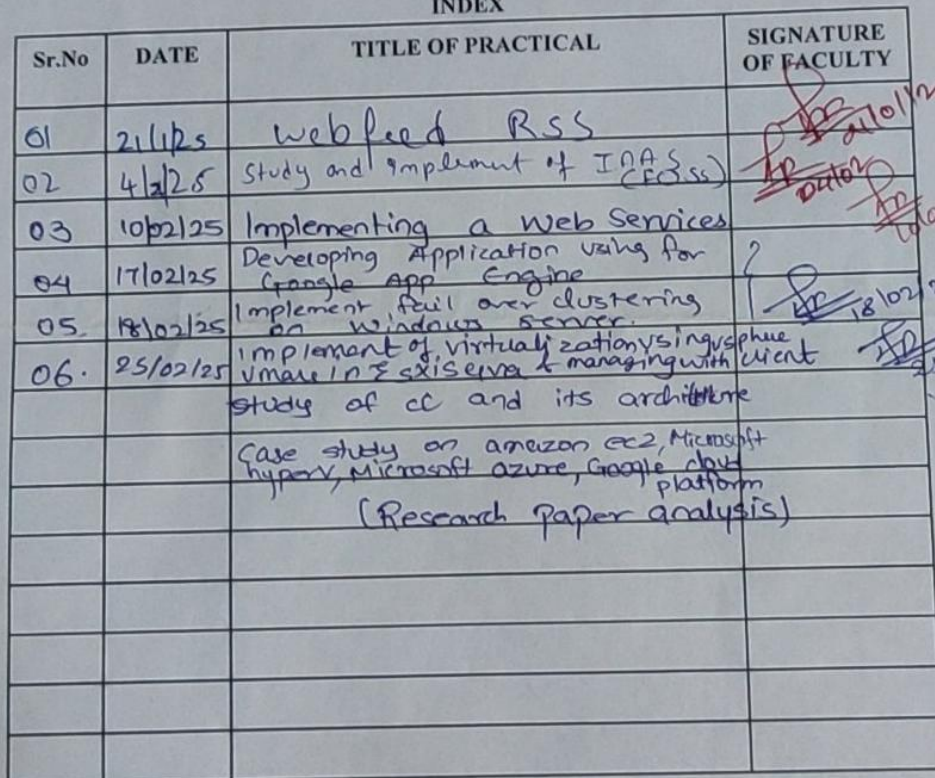 INDEX
Sr.No DATE TITLE OF PRACTICAL SIGNATURE
OF FACULTY
01 21/1/25 Webfeed RSS 21/01/2
02 4/2/25 Study and implement of IAAS
(FOSS) 04/02
03 10/02/25 Implementing a Web Services
04 17/02/25 Developing Application using for
Google App Engine
05. 18/02/25 Implement fail over clustering
on windows server. 18/02/
06. 25/02/25 implement of virtualization using vsphue
vmare in Esxiserva & managing with client
study of cc and its architerure
Case study on amazon ec2, Microsoft
hyperV, Microsoft azure, Google cloud
platform
(Research paper analysis)